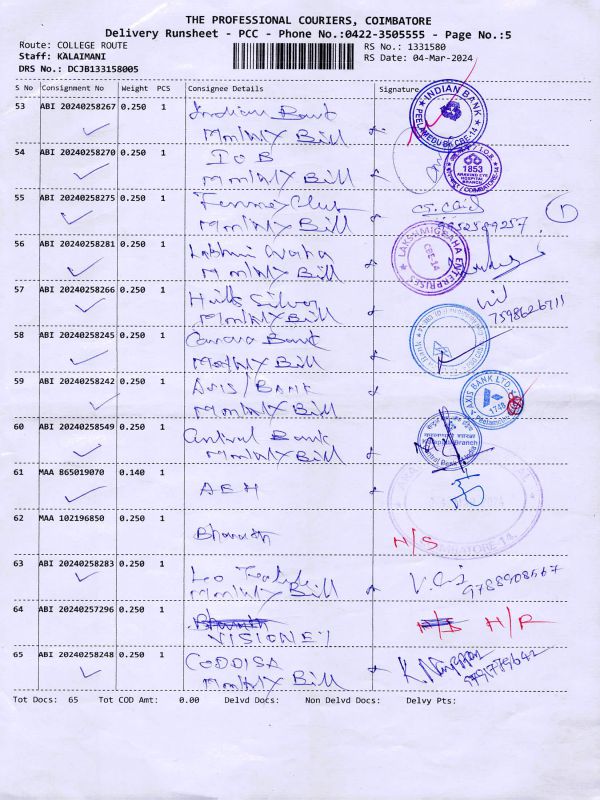 THE PROFESSIONAL COURIERS, COIMBATORE
Delivery Runsheet - PCC - Phone No.:0422-3505555 - Page No.:5
Route: COLLEGE ROUTE
RS No.: 1331580
Staff: KALAIMANI
RS Date: 04-Mar-2024
DRS No.: DCJB133158005
S No Consignment No Weight PCS Consignee Details Signature
53 ABI 20240258267 0.250 1 Indian Bank
Monthly Bill
INDIAN BANK
PEELAMEDU BR. CBE-14
54 ABI 20240258270 0.250 1 IOB
Monthly Bill
I.O.B.
1853
ARAVIND EYE
HOSPITAL
BRANCH
COIMBATORE-14
55 ABI 20240258275 0.250 1
Monthly Bill
9952589257
1
56 ABI 20240258281 0.250 1
Monthly Bill
LAKSHMIGRAHA ENTERPRISES
CBE-14
57 ABI 20240258266 0.250 1 Hills Silver
Monthly Bill
7598626711
58 ABI 20240258245 0.250 1 Canara Bank
Monthly Bill
59 ABI 20240258242 0.250 1 AXIS/BANK
Monthly Bill
AXIS BANK LTD.
1748
60 ABI 20240258549 0.250 1 Central Bank
Monthly Bill
61 MAA 865019070 0.140 1 AEH
62 MAA 102196850 0.250 1 Bharath
N/S
COIMBATORE 14.
63 ABI 20240258283 0.250 1 Leo
Monthly Bill
9788908567
64 ABI 20240257296 0.250 1
VISIONEY
H/R
65 ABI 20240258248 0.250 1 CODDISA
Monthly Bill
9791779642
Tot Docs: 65 Tot COD Amt: 0.00 Delvd Docs: Non Delvd Docs: Delvy Pts: